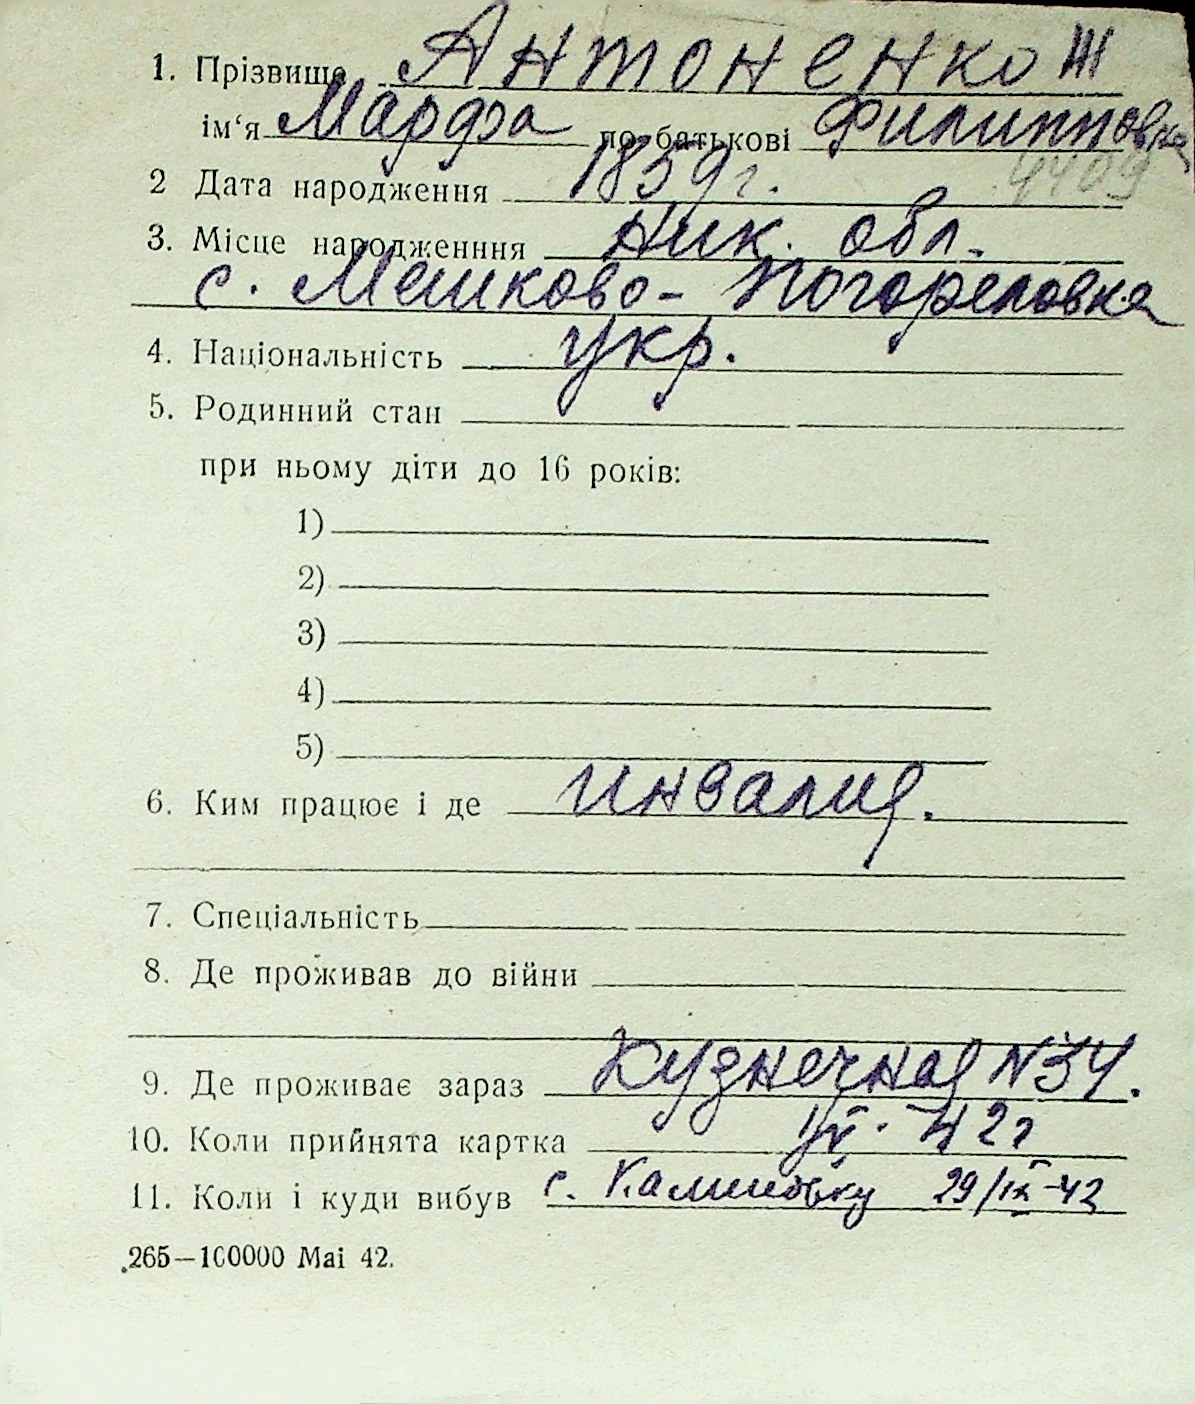 1. Прізвище Антоненко Ш
ім‘я Марфа по батькові Филипповна
4409
2 Дата народження 1859 г.
3. Місце народженння Ник. обл.
с. Мешково-Погореловка
4. Національність укр.
5. Родинний стан
при ньому діти до 16 років:
1)
2)
3)
4)
5)
6. Ким працює і де инвалид.
7. Спеціальність
8. Де проживав до війни
9. Де проживає зараз Кузнечная N 34.
10. Коли прийнята картка 42г
11. Коли і куди вибув с. Калиновку 29/IX-42
265—100000 Mai 42.